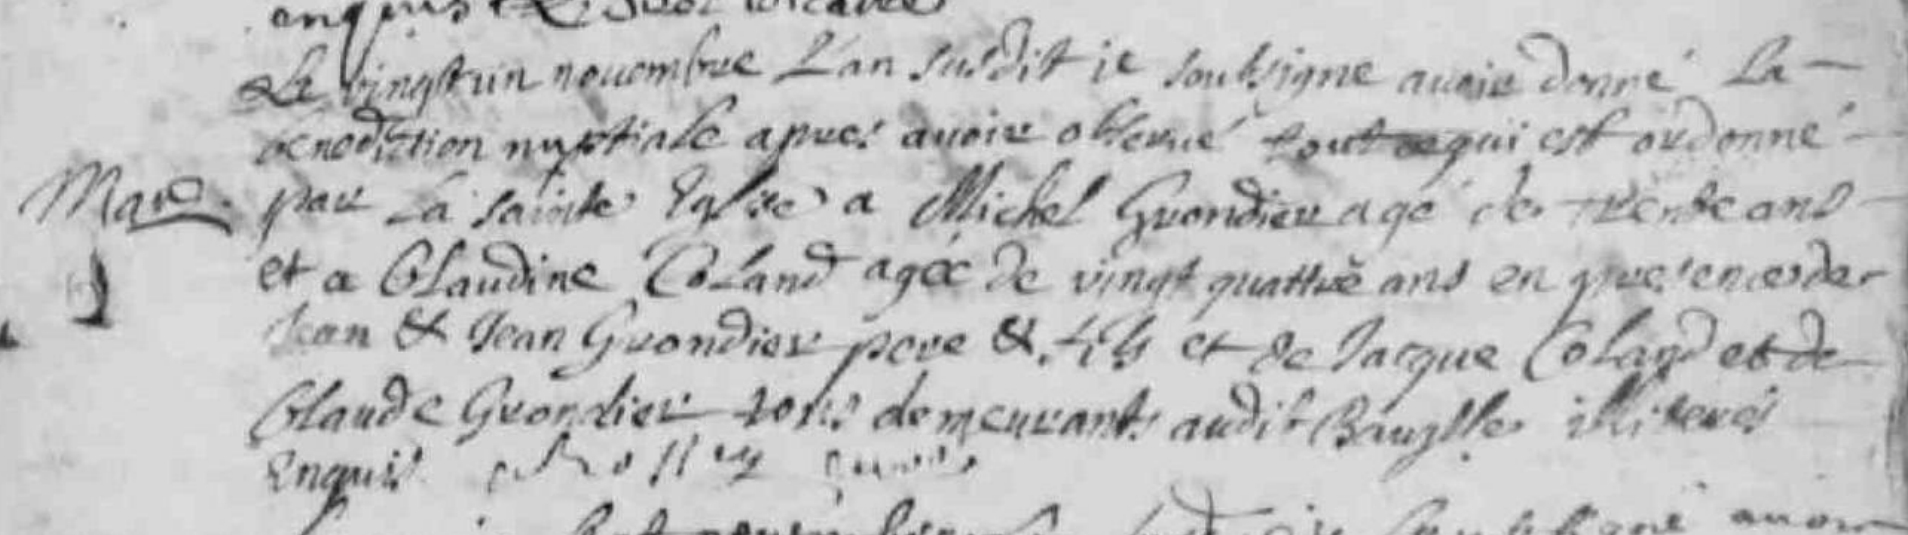 enquis
Le vingt un nouembre L'an susdit ie soubsigne auoir donné La
benediction nuptiale apres auoir obserué tout ce qui est ordonné
Mar. par La sainte Eglise a Michel Grondier agé de trente ans
et a Claudine Coland agée de vingt quattre ans en presences de
Jean & Jean Grondier pere & fils et de Jacque Coland et de
Claude Grondier tous demeurants audit illiterés
Enquis